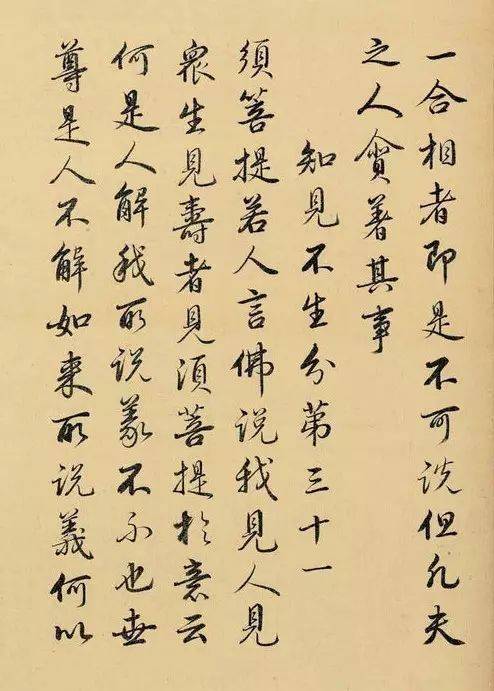 一合相者即是不可說但凡夫
之人貪著其事
知見不生分第三十一
須菩提若人言佛說我見人見
眾生見壽者見須菩提於意云
何是人解我所說義不不也世
尊是人不解如來所說義何以